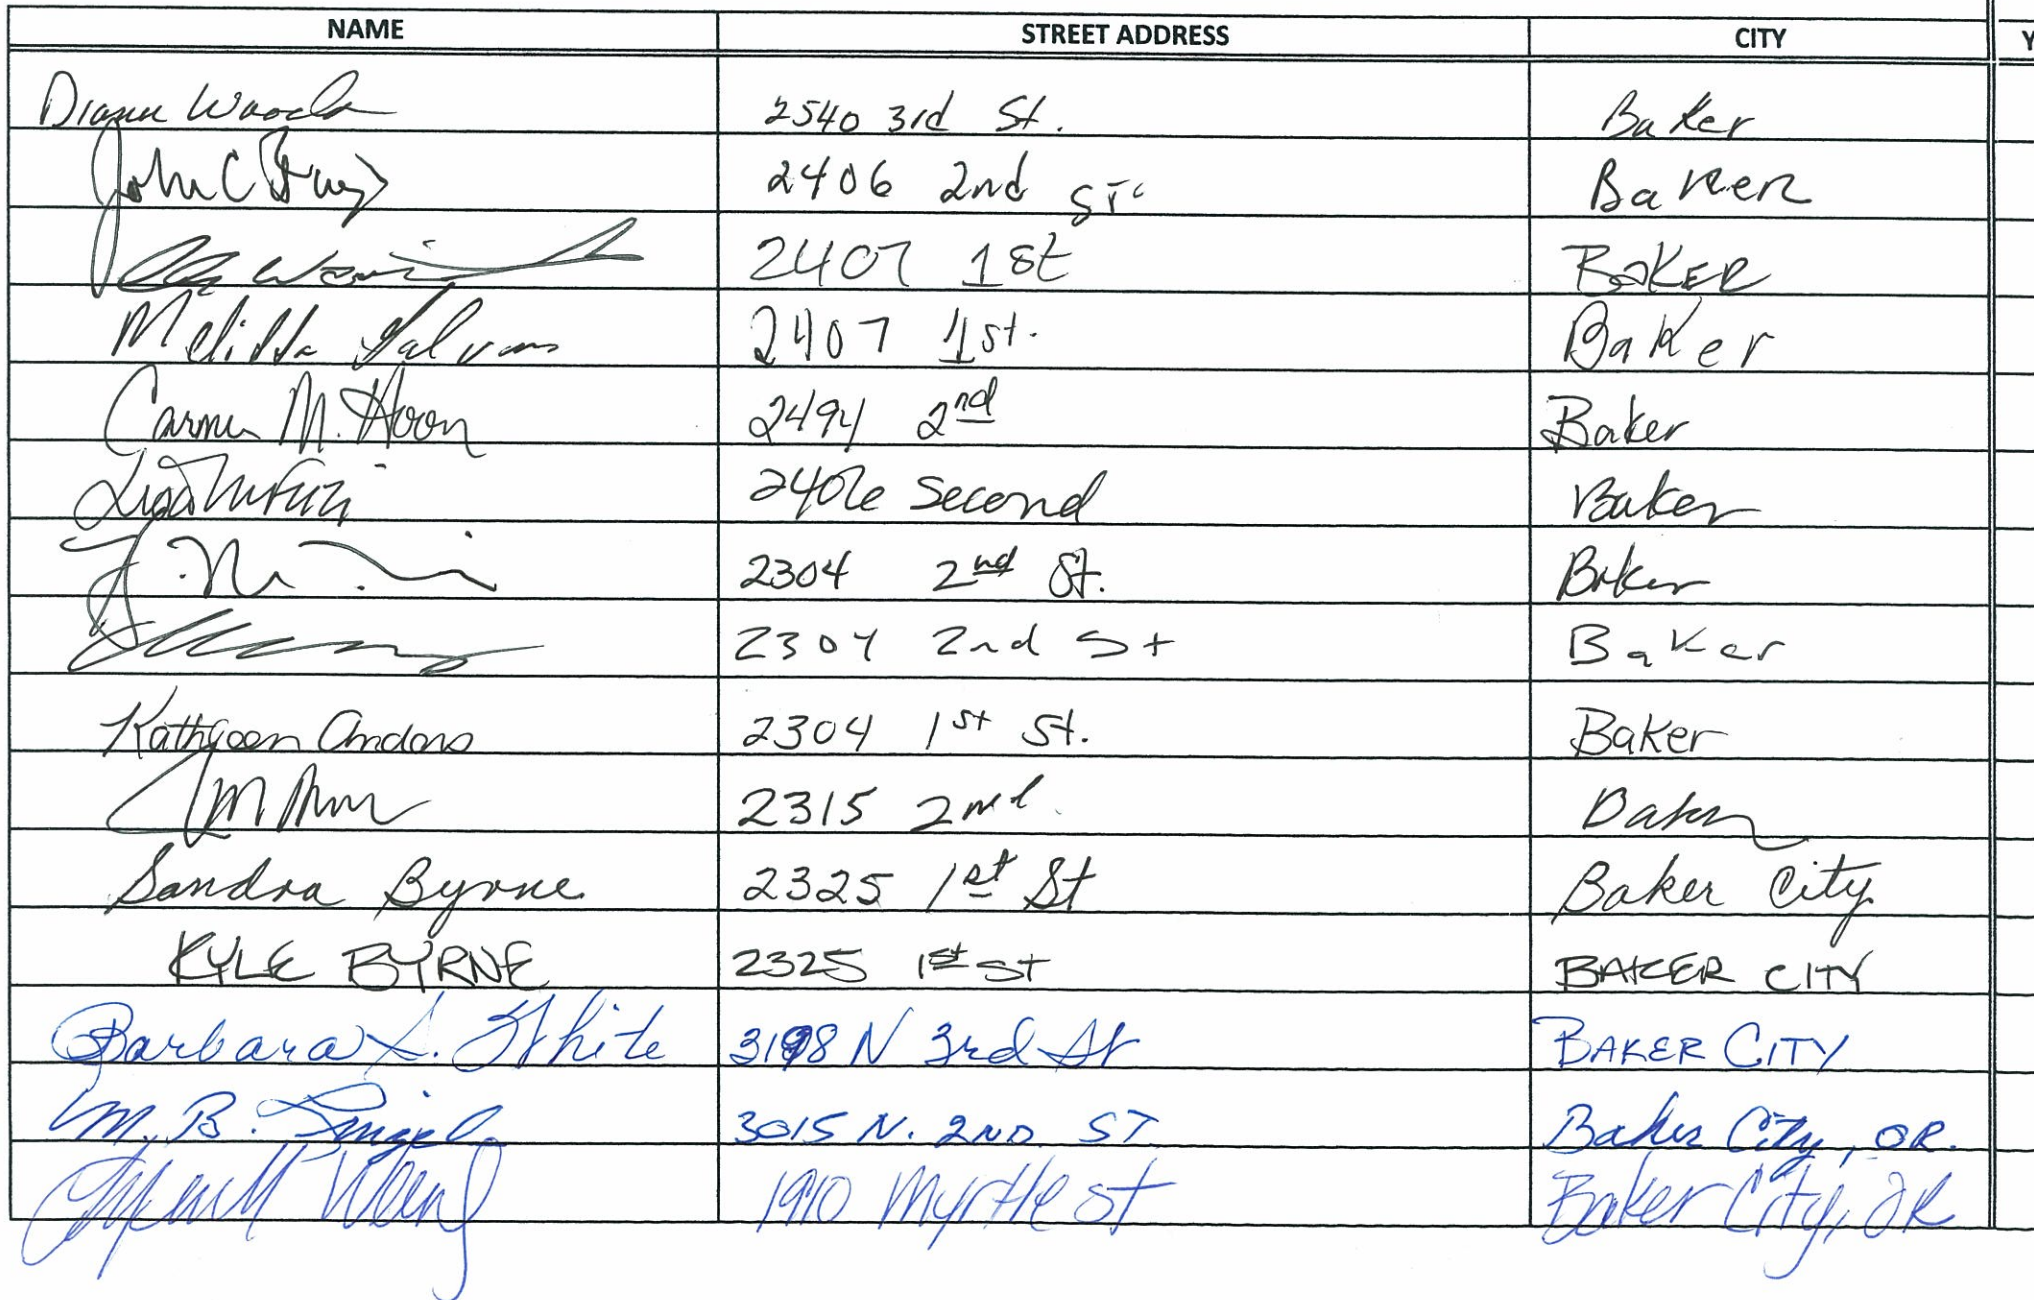 NAME STREET ADDRESS CITY Y
Diann Woods 2540 3rd St. Baker
John C 2406 2nd ST. Baker
2407 1st BAKER
Melissa Galvan 2407 1st. Baker
Carmen M. Hoon 2494 2nd Baker
Lisa 2406 Second Baker
2304 2nd St. Baker
2304 2nd St Baker
Kathleen Anders 2304 1st St. Baker
2315 2nd Baker
Sandra Byrne 2325 1st St Baker City
KYLE BYRNE 2325 1st ST BAKER CITY
Barbara S. White 3198 N 3rd St BAKER CITY
M. B. 3015 N. 2ND ST Baker City, OR.
1910 Myrtle St Baker City, OR